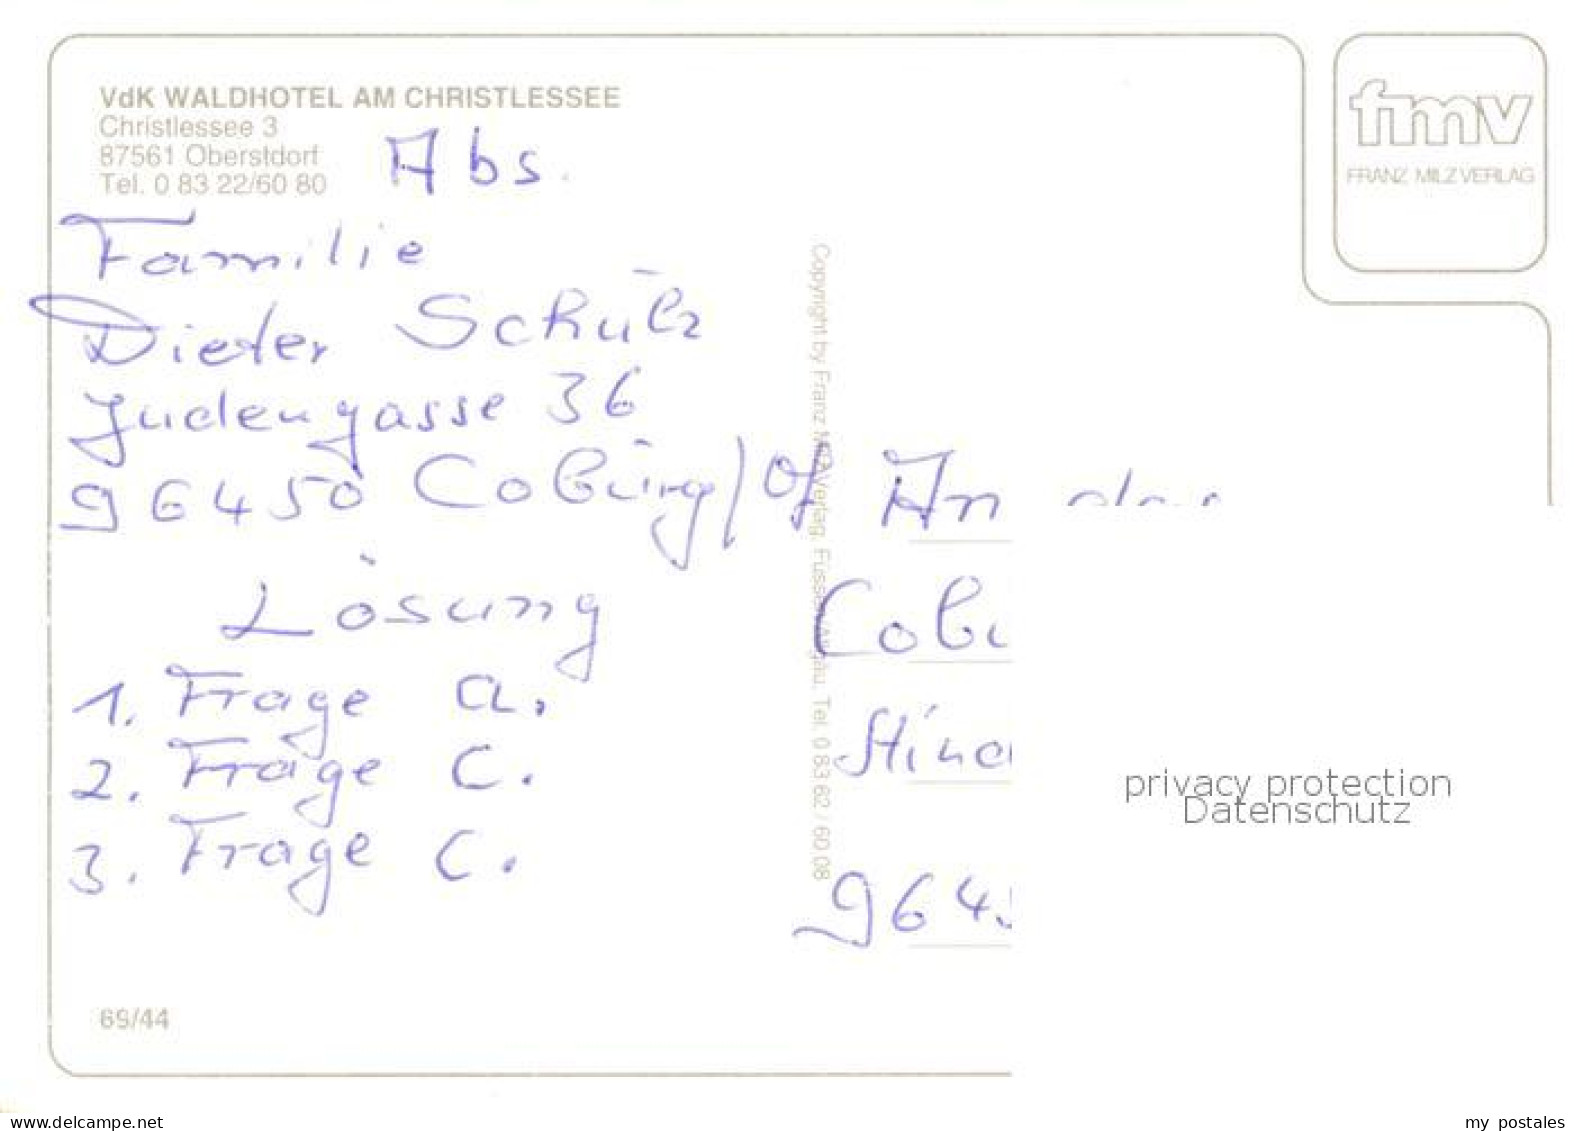 VdK WALDHOTEL AM CHRISTLESSEE
Christlessee 3
87561 Oberstdorf
Tel. 0 83 22/60 80
Abs.
Familie
Dieter Schulz
Judengasse 36
96450 Coburg/
Lösung
1. Frage a.
2. Frage C.
3. Frage C.
69/44
fmv
FRANZ MILZ VERLAG
Copyright by Franz Milz Verlag, Füssen/Allgäu, Tel. 0 83 62 / 60 08
An
Cobu
964
privacy protection
Datenschutz
www.delcampe.net
my_postales